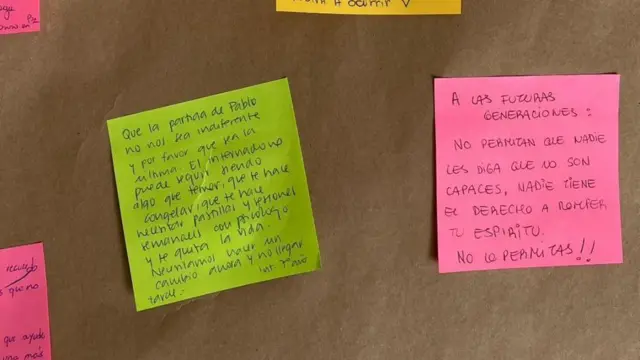 Que la partida de Pablo
no nos sea indiferente
y por favor que sea la
última. El internado no
puede seguir siendo
algo que temer, que te hace
congelar, que te hace
necesitar pastillas y sesiones
semanales con psicólogo
y te quita la vida.
Necesitamos hacer un
cambio ahora y no llegar
tarde.
Int. 7º año
A LAS FUTURAS
GENERACIONES:
NO PERMITAN QUE NADIE
LES DIGA QUE NO SON
CAPACES, NADIE TIENE
EL DERECHO A ROMPER
TU ESPIRITU.
NO LO PERMITAS!!
recuerdo
que no
que ayude
más